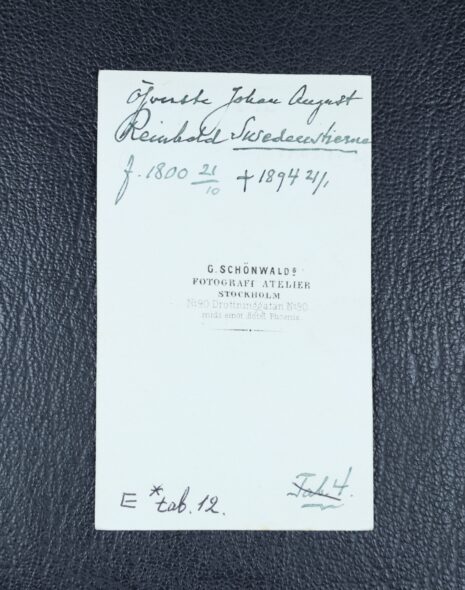 Öfverste Johan August
Reinhold Swedenstierna
f. 1800 21/10 † 1894 4/1
G. SCHÖNWALDS
FOTOGRAFI ATELIER
STOCKHOLM
No 90 Drottninggatan No 90
midt emot Hôtel Phoenix.
E * tab. 12.
Tab. 4.